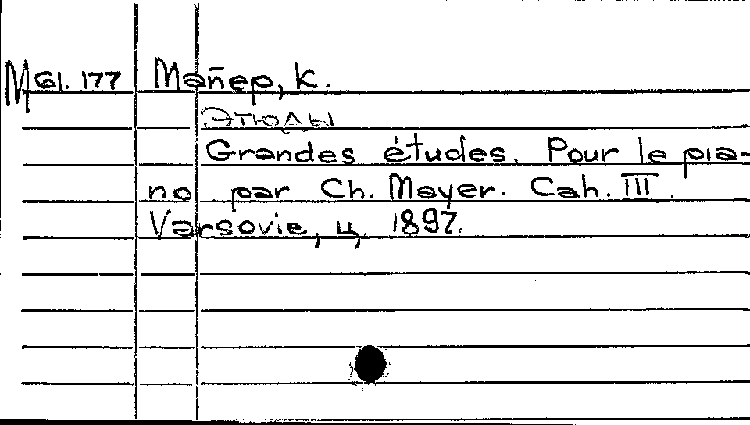 М61.177 Майер, К.
Этюды
Grandes études. Pour le pia-
no par Ch. Mayer. Cah. III.
Varsovie, ц, 1897.